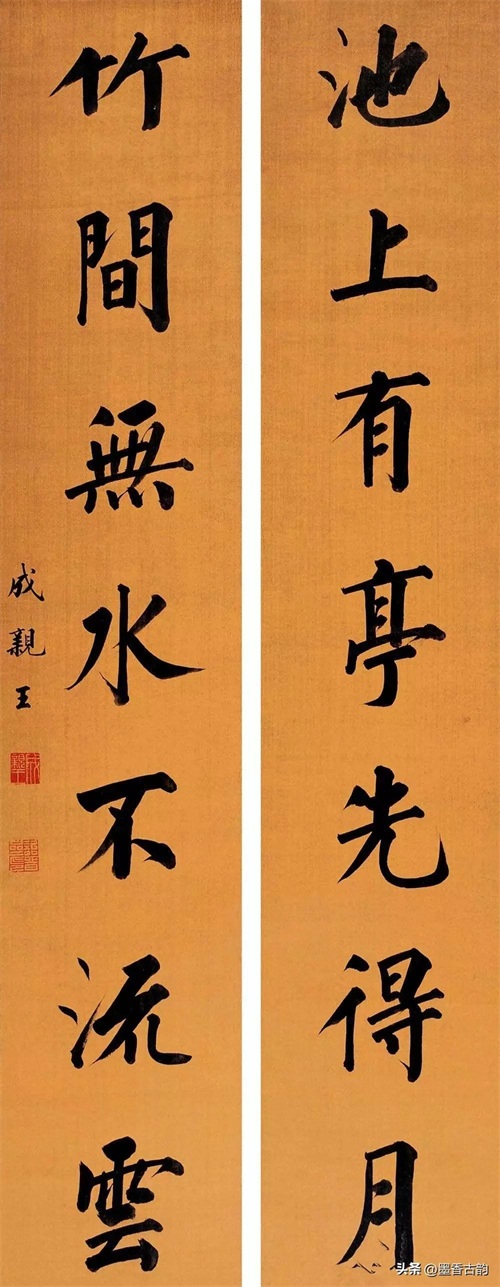 池上有亭先得月
竹間無水不流雲
成親王
头条 @墨香古韵